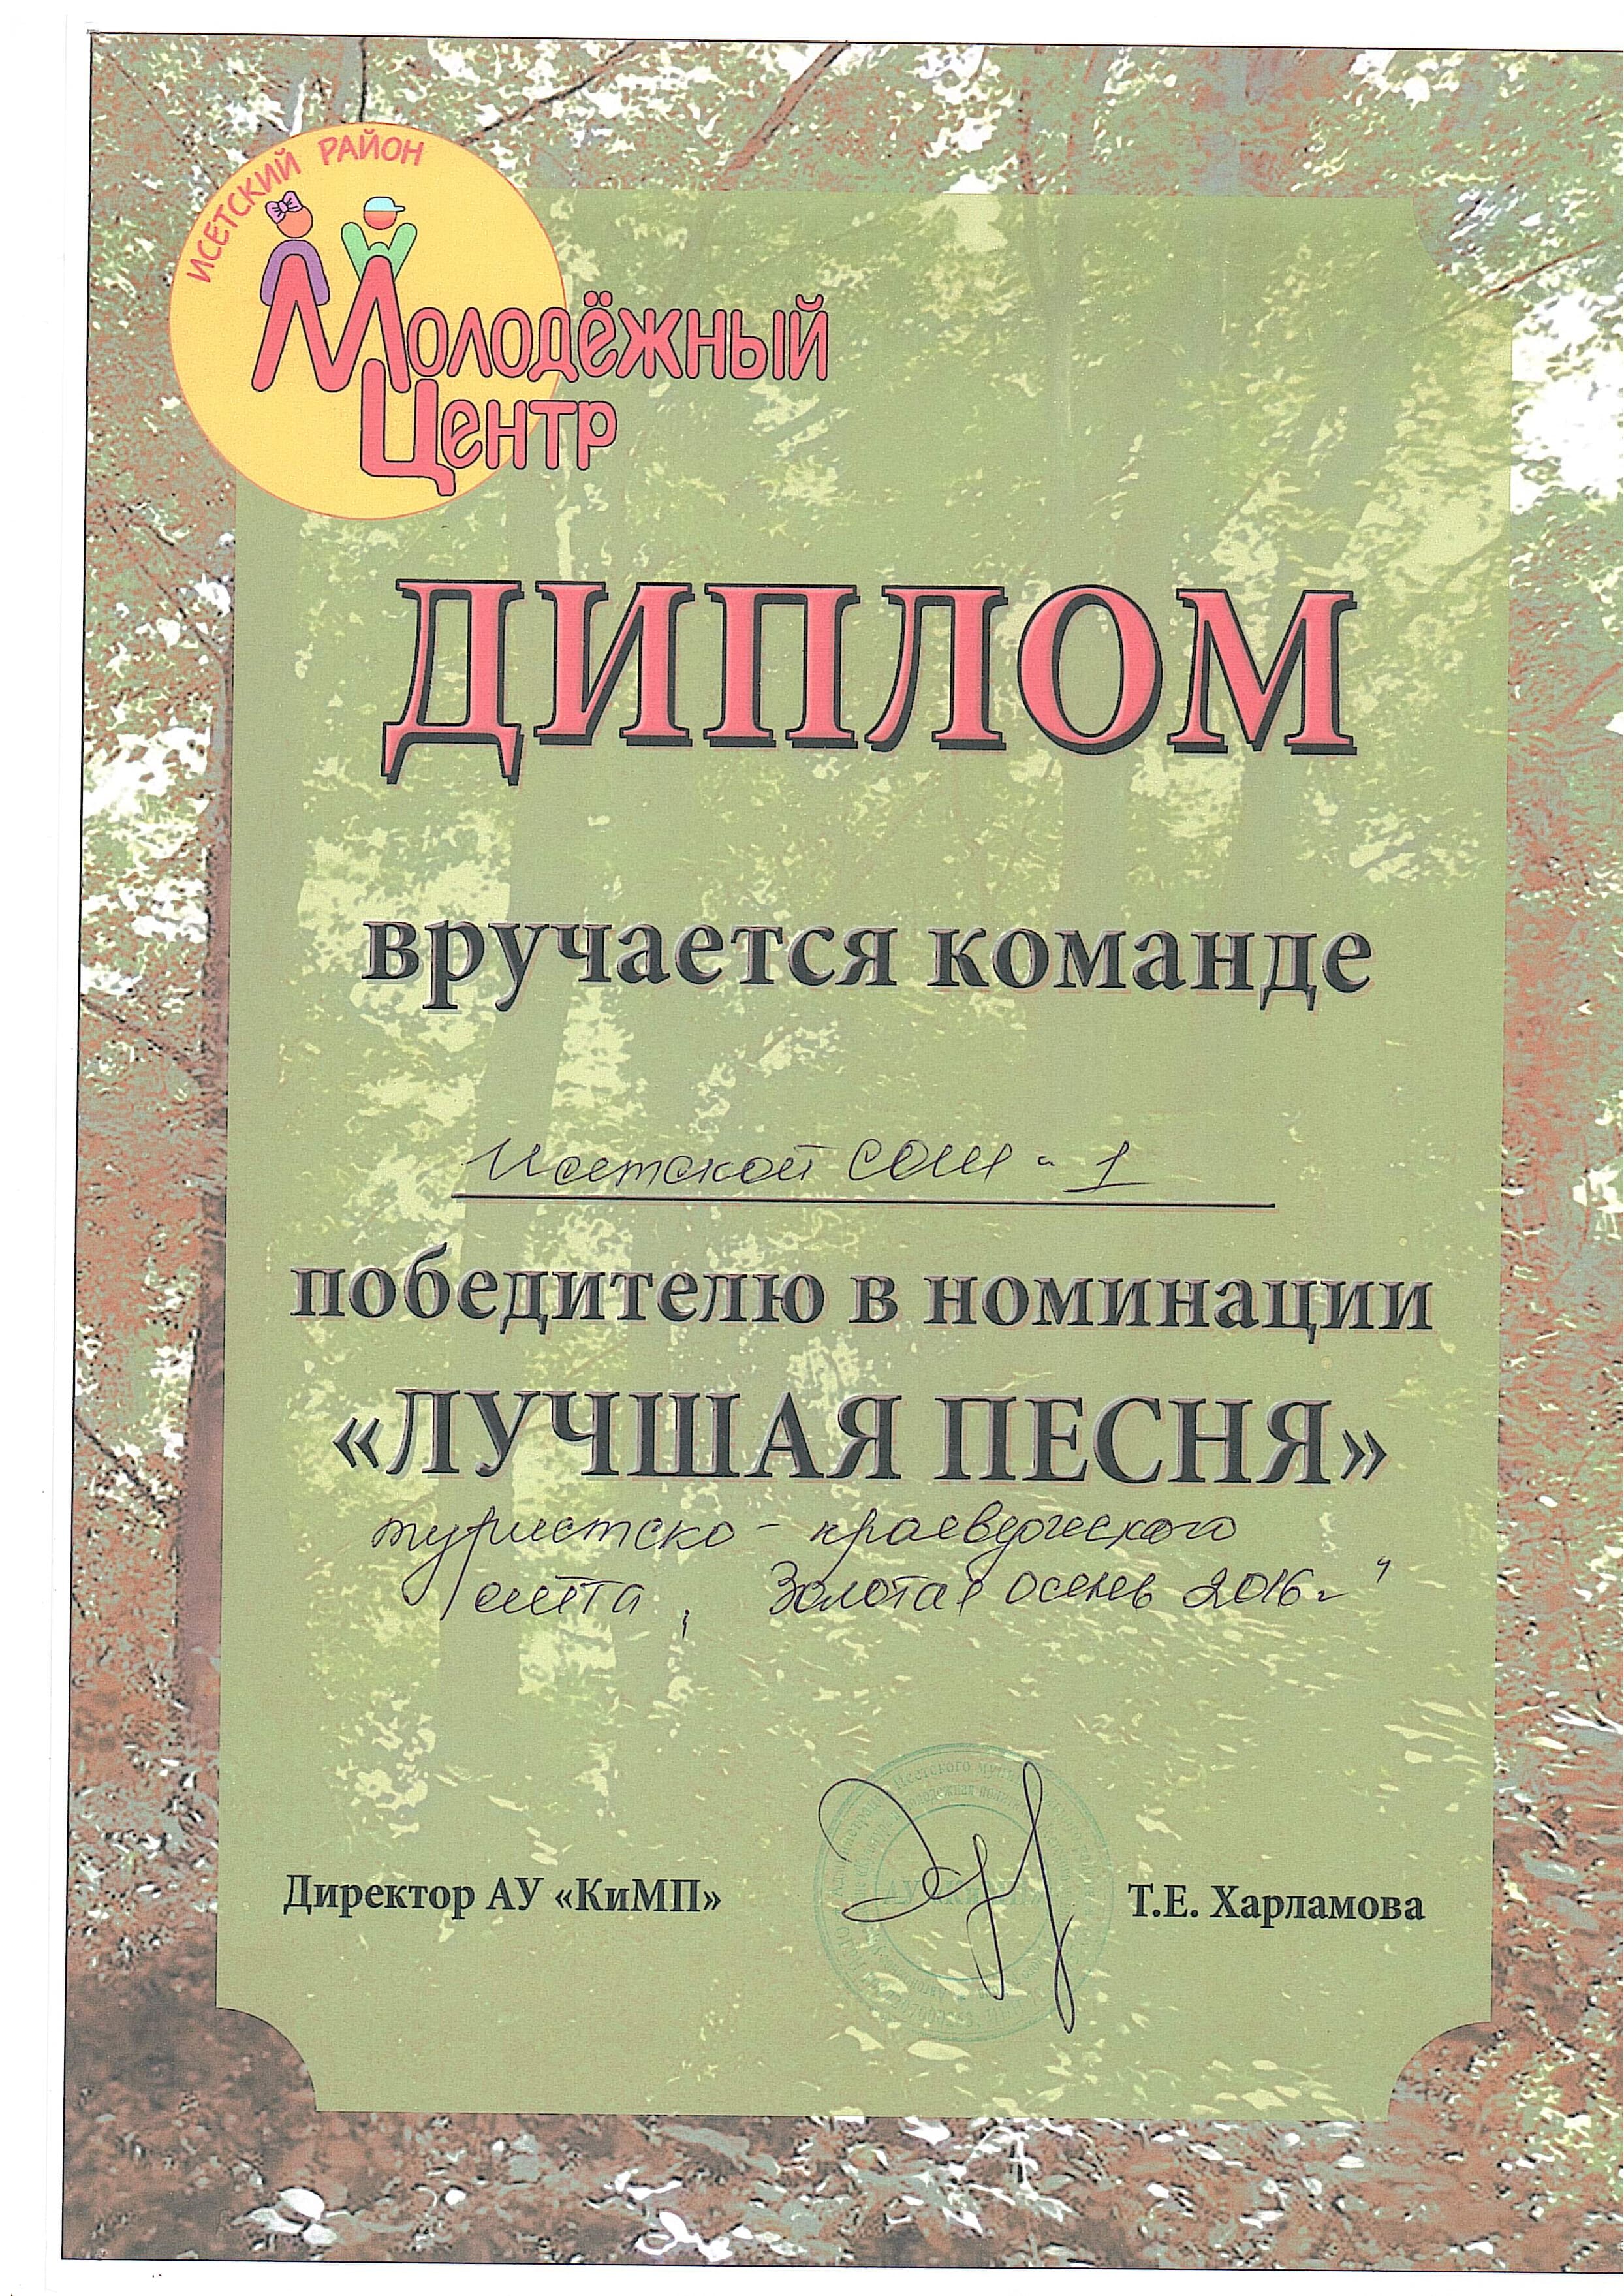 ИСЕТСКИЙ РАЙОН
МОЛОДЁЖНЫЙ
ЦЕНТР
ДИПЛОМ
вручается команде
Исетской СОШ - 1
победителю в номинации
«ЛУЧШАЯ ПЕСНЯ»
туристско - краеведческого
слёта „ Золотая осень 2016г "
Директор АУ «КиМП»
Т.Е. Харламова